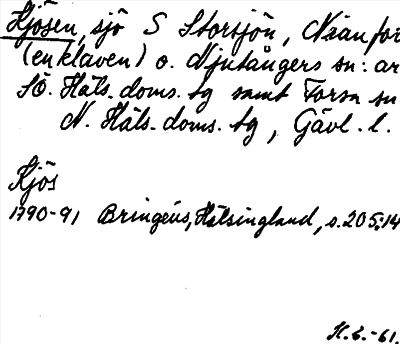 Kjösen, sjö S Storsjön, Nianfor
(enklaven) o. Njutångers sn:ar
Sö. Häls. doms. tg samt Forsa sn
N. Häls. doms. tg, Gävl. l.
Kjös
1790-91 Bringéus, Hälsingland, s. 205:14
H.E.-61.